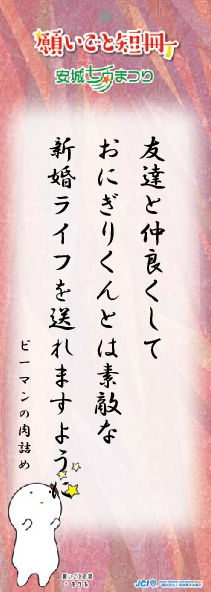 願いごと短冊
安城七夕まつり
友達と仲良くして
おにぎりくんとは素敵な
新婚ライフを送れますように
ピーマンの肉詰め
願いごと短冊
JCI